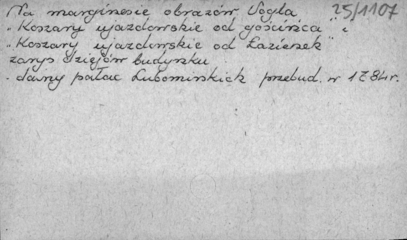 Na marginesie obrazów Vogla 25/1107
"Koszary ujazdowskie od gościńca" i
"Koszary ujazdowskie od Łazienek"
zarys dziejów budynku
. dawny pałac Lubomirskich przebud. w 1784r.